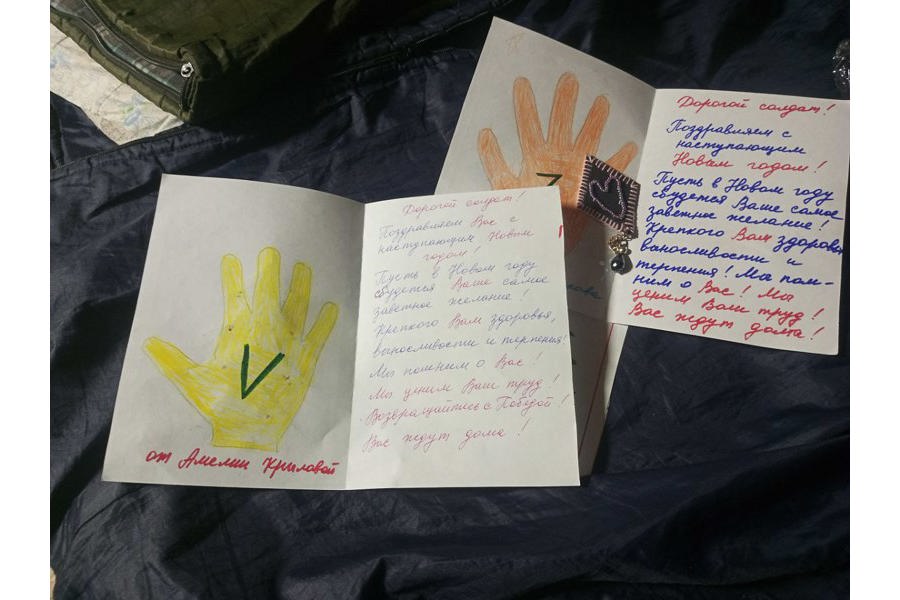 V
от Амелии Крыловой
Дорогой солдат!
Поздравляем Вас с
наступающим Новым
годом!
Пусть в Новом году
сбудется Ваше самое
заветное желание!
Крепкого Вам здоровья,
выносливости и терпения!
Мы помним о Вас!
Мы ценим Ваш труд!
Возвращайтесь с Победой!
Вас ждут дома!
Z
Дорогой солдат!
Поздравляем с
наступающим
Новым годом!
Пусть в Новом году
сбудется Ваше самое
заветное желание!
Крепкого Вам здоровья
выносливости и
терпения! Мы пом-
ним о Вас! Мы
ценим Ваш труд!
Вас ждут дома!